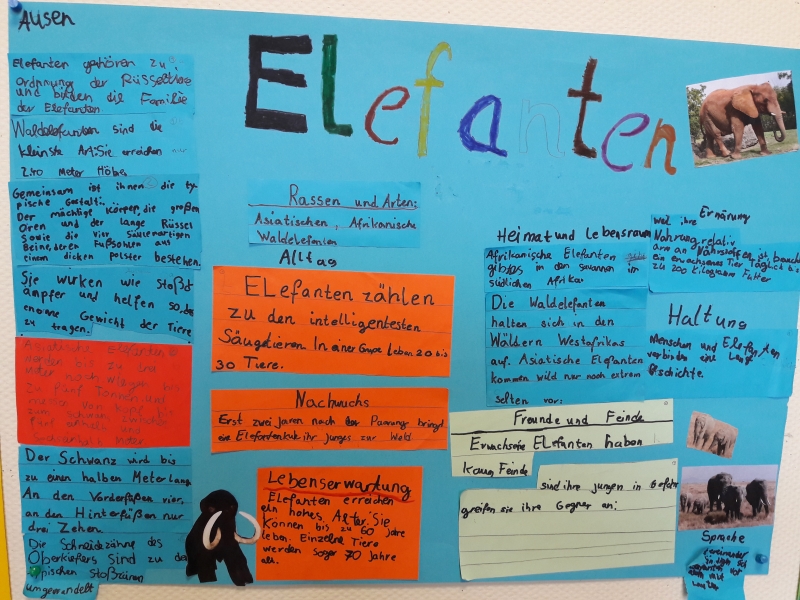 Ausen
Elefanten
Elefanten gehören zu
Ordnung der Rüsseltiere
und bilden die Familie
der Elefanten
Waldelefanten sind die
kleinste Art: Sie erreichen nur
2,40 Meter Höhe.
Gemeinsam ist ihnen die ty-
pische Gestalt:
Der mächtige Körper, die großen
Oren und der lange Rüssel
Sowie die vier säulenartigen
Beine, deren Fußsohlen aus
einem dicken polster bestehen.
Sie wurken wie stoßd
ämpfer und helfen so, das
enorme Gewicht der Tiere
zu tragen.
Asiatische Elefanten
werden bis zu drei
Meter hoch, wiegen bis
zu fünf Tonnen und
messen von Kopf bis
zum Schwanz zwischen
fünf einhalb und
Der Schwanz wird bis
zu einen halben Meter lang
An den Vorderfüßen vier,
an den Hinterfüßen nur
drei Zehen.
Die Schneidezähne des
Oberkiefers sind zu de
typischen stoßzänen
umgewandelt
Rassen und Arten:
Asiatischen, Afrikanische
Waldelefanten
Alltag
Elefanten zählen
zu den intelligentesten
Säugetieren. In einer Grupe leben 20 bis
30 Tiere.
Nachwuchs
Erst zwei Jaren nach der Paarung bringt
eine Elefantenkuh ihr junges zur Weld
Lebenserwartung
Elefanten erreichen
ein hohes Alter. Sie
können bis zu 60 Jare
leben. Einzelne Tiere
werden sogar 70 Jahre
alt.
Heimat und Lebensraum
Afrikanische Elefanten
gibt es in den savannen im
südlichen Afrika
Die Waldelefanten
halten sich in den
Wäldern Westafrikas
auf. Asiatische Elefanten
kommen wild nur noch extrem
selten vor.
Ernärung
Weil ihre
Nahrung relativ
arm an Nährstoffen ist, brauch
ein erwachsenes Tier täglich bis
zu 200 Kilogramm Futter
Haltung
Menschen und Elefanten
verbindet eine Lange
Gschichte.
Freunde und Feinde
Erwachsene Elefanten haben
kaum Feinde
sind ihre jungen in Gefahr
greifen sie ihre Gegner an.
Sprache